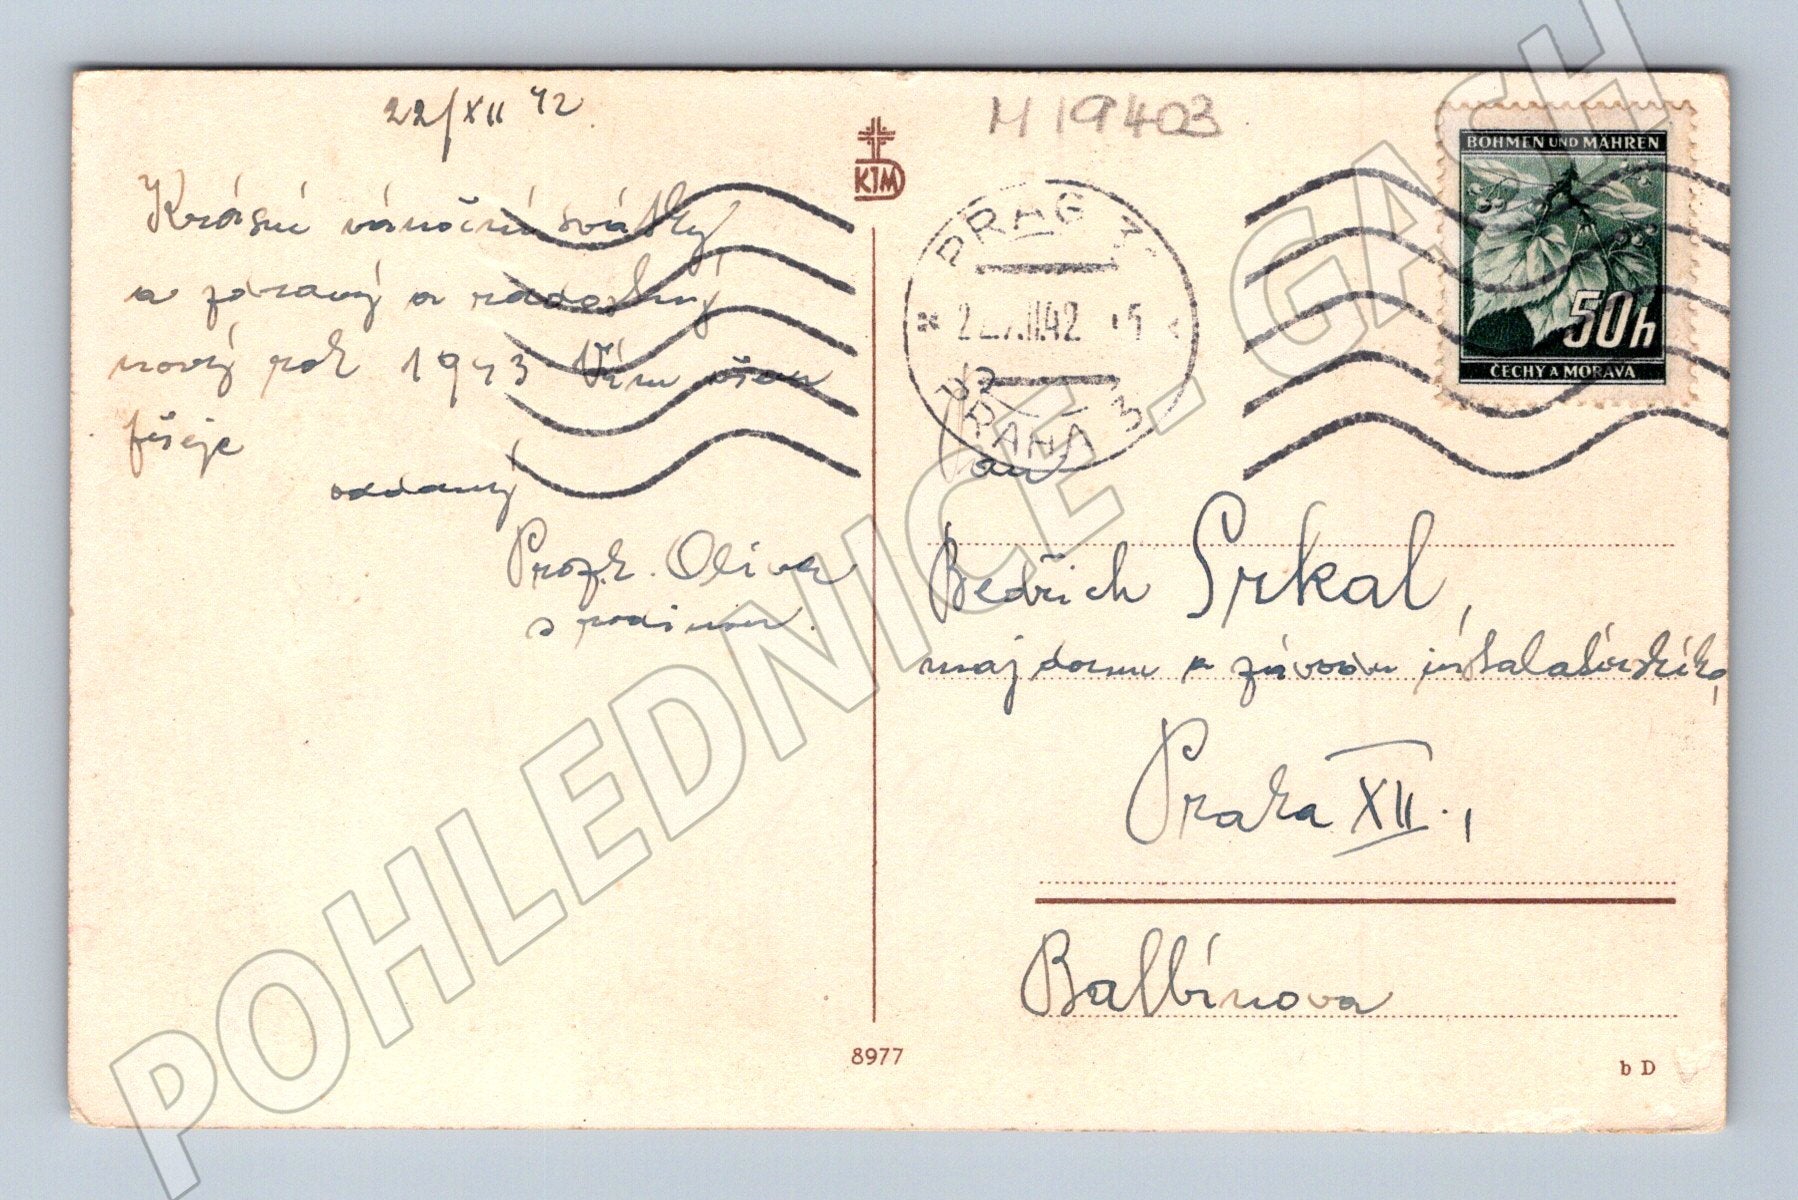 22/XII 42
M 19403
KJM
Krásné vánoční svátky
a zdravý a radostný
nový rok 1943 Vám všem
přeje
oddaný
Prof. Oliva
s rodinou.
PRAG 3
2 .XII.42
PRAHA 3
BÖHMEN UND MÄHREN
50h
ČECHY A MORAVA
Pan
Bedřich Srkal,
maj domu a závodu instalatérského,
Praha XII.,
Balbínova
8977
b D
POHLEDNICE.GASH